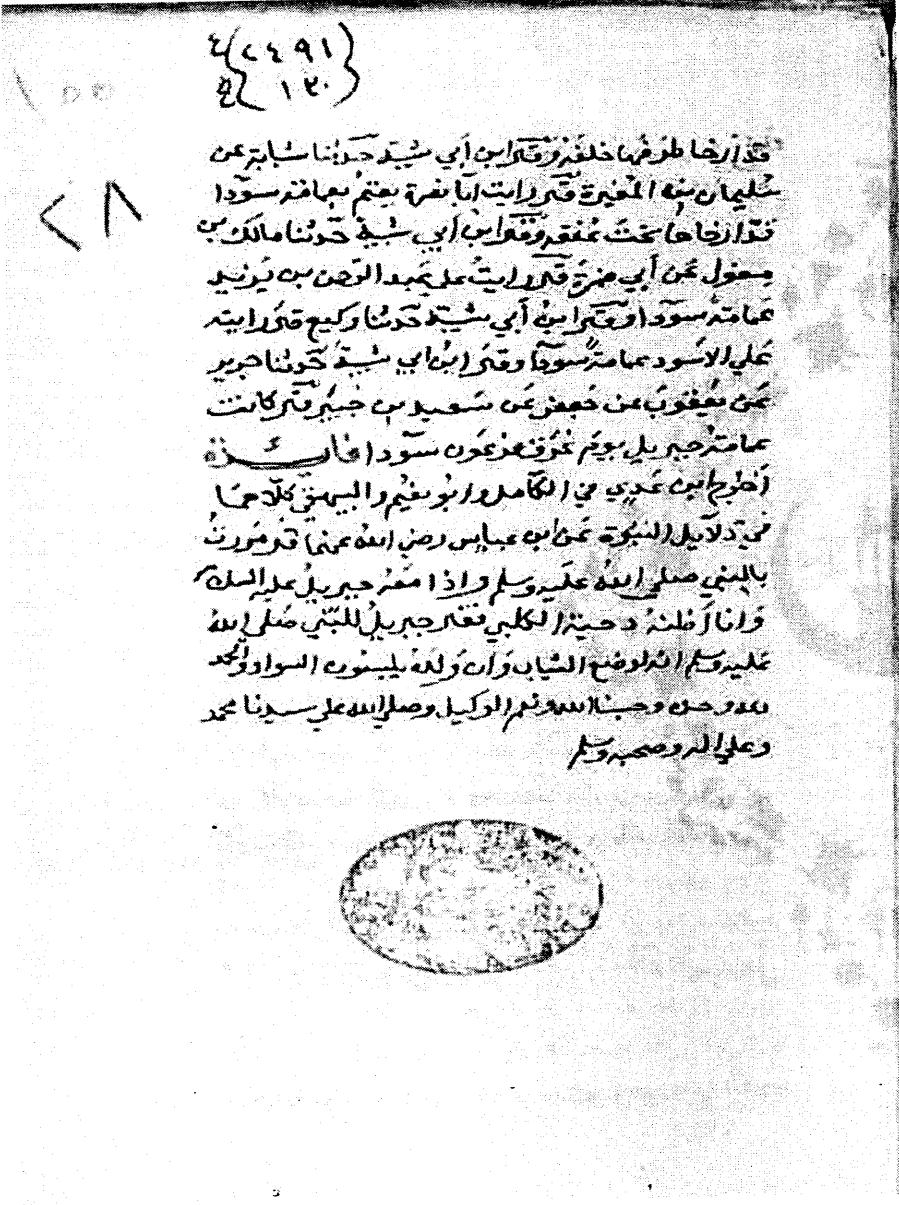 ع (٢٤٩١)
ج ( ١٣٠ )
٢٨
قد أرخا طرفها خلفه وقال ابن أبي شيبة حدثنا شبابة عن
سليمان بن المغيرة قال رايت أبا نضرة يعتم بعمامة سودا
قد ارخاها تحت عنقه وقال ابن أبي شيبة حدثنا مالك بن
مغول عن أبي صخرة قال رايت على عبد الرحمن بن يزيد
عمامة سودا وقال ابن أبي شيبة حدثنا وكيع قال رايت
علي الاسود عمامة سودا وقال ابن ابي شيبة حدثنا جرير
عن يعقوب عن جعفر عن سعيد بن جبير قال كانت
عمامة جبريل يوم غرق فرعون سودا فائدة
أخرج ابن عدي في الكامل وابو نعيم والبيهقي كلاهما
في دلايل النبوة عن ابن عباس رضي الله عنهما قال مررت
بالنبي صلى الله عليه وسلم واذا معه جبريل عليه السلام
وانا أظنه دحية الكلبي فقال جبريل للنبي صلى الله
عليه وسلم انه لوضح الثياب وان ولده يلبسون السواد والحمد
لله وحده وحسبنا الله ونعم الوكيل وصلى الله علي سيدنا محمد
وعلي اله وصحبه وسلم